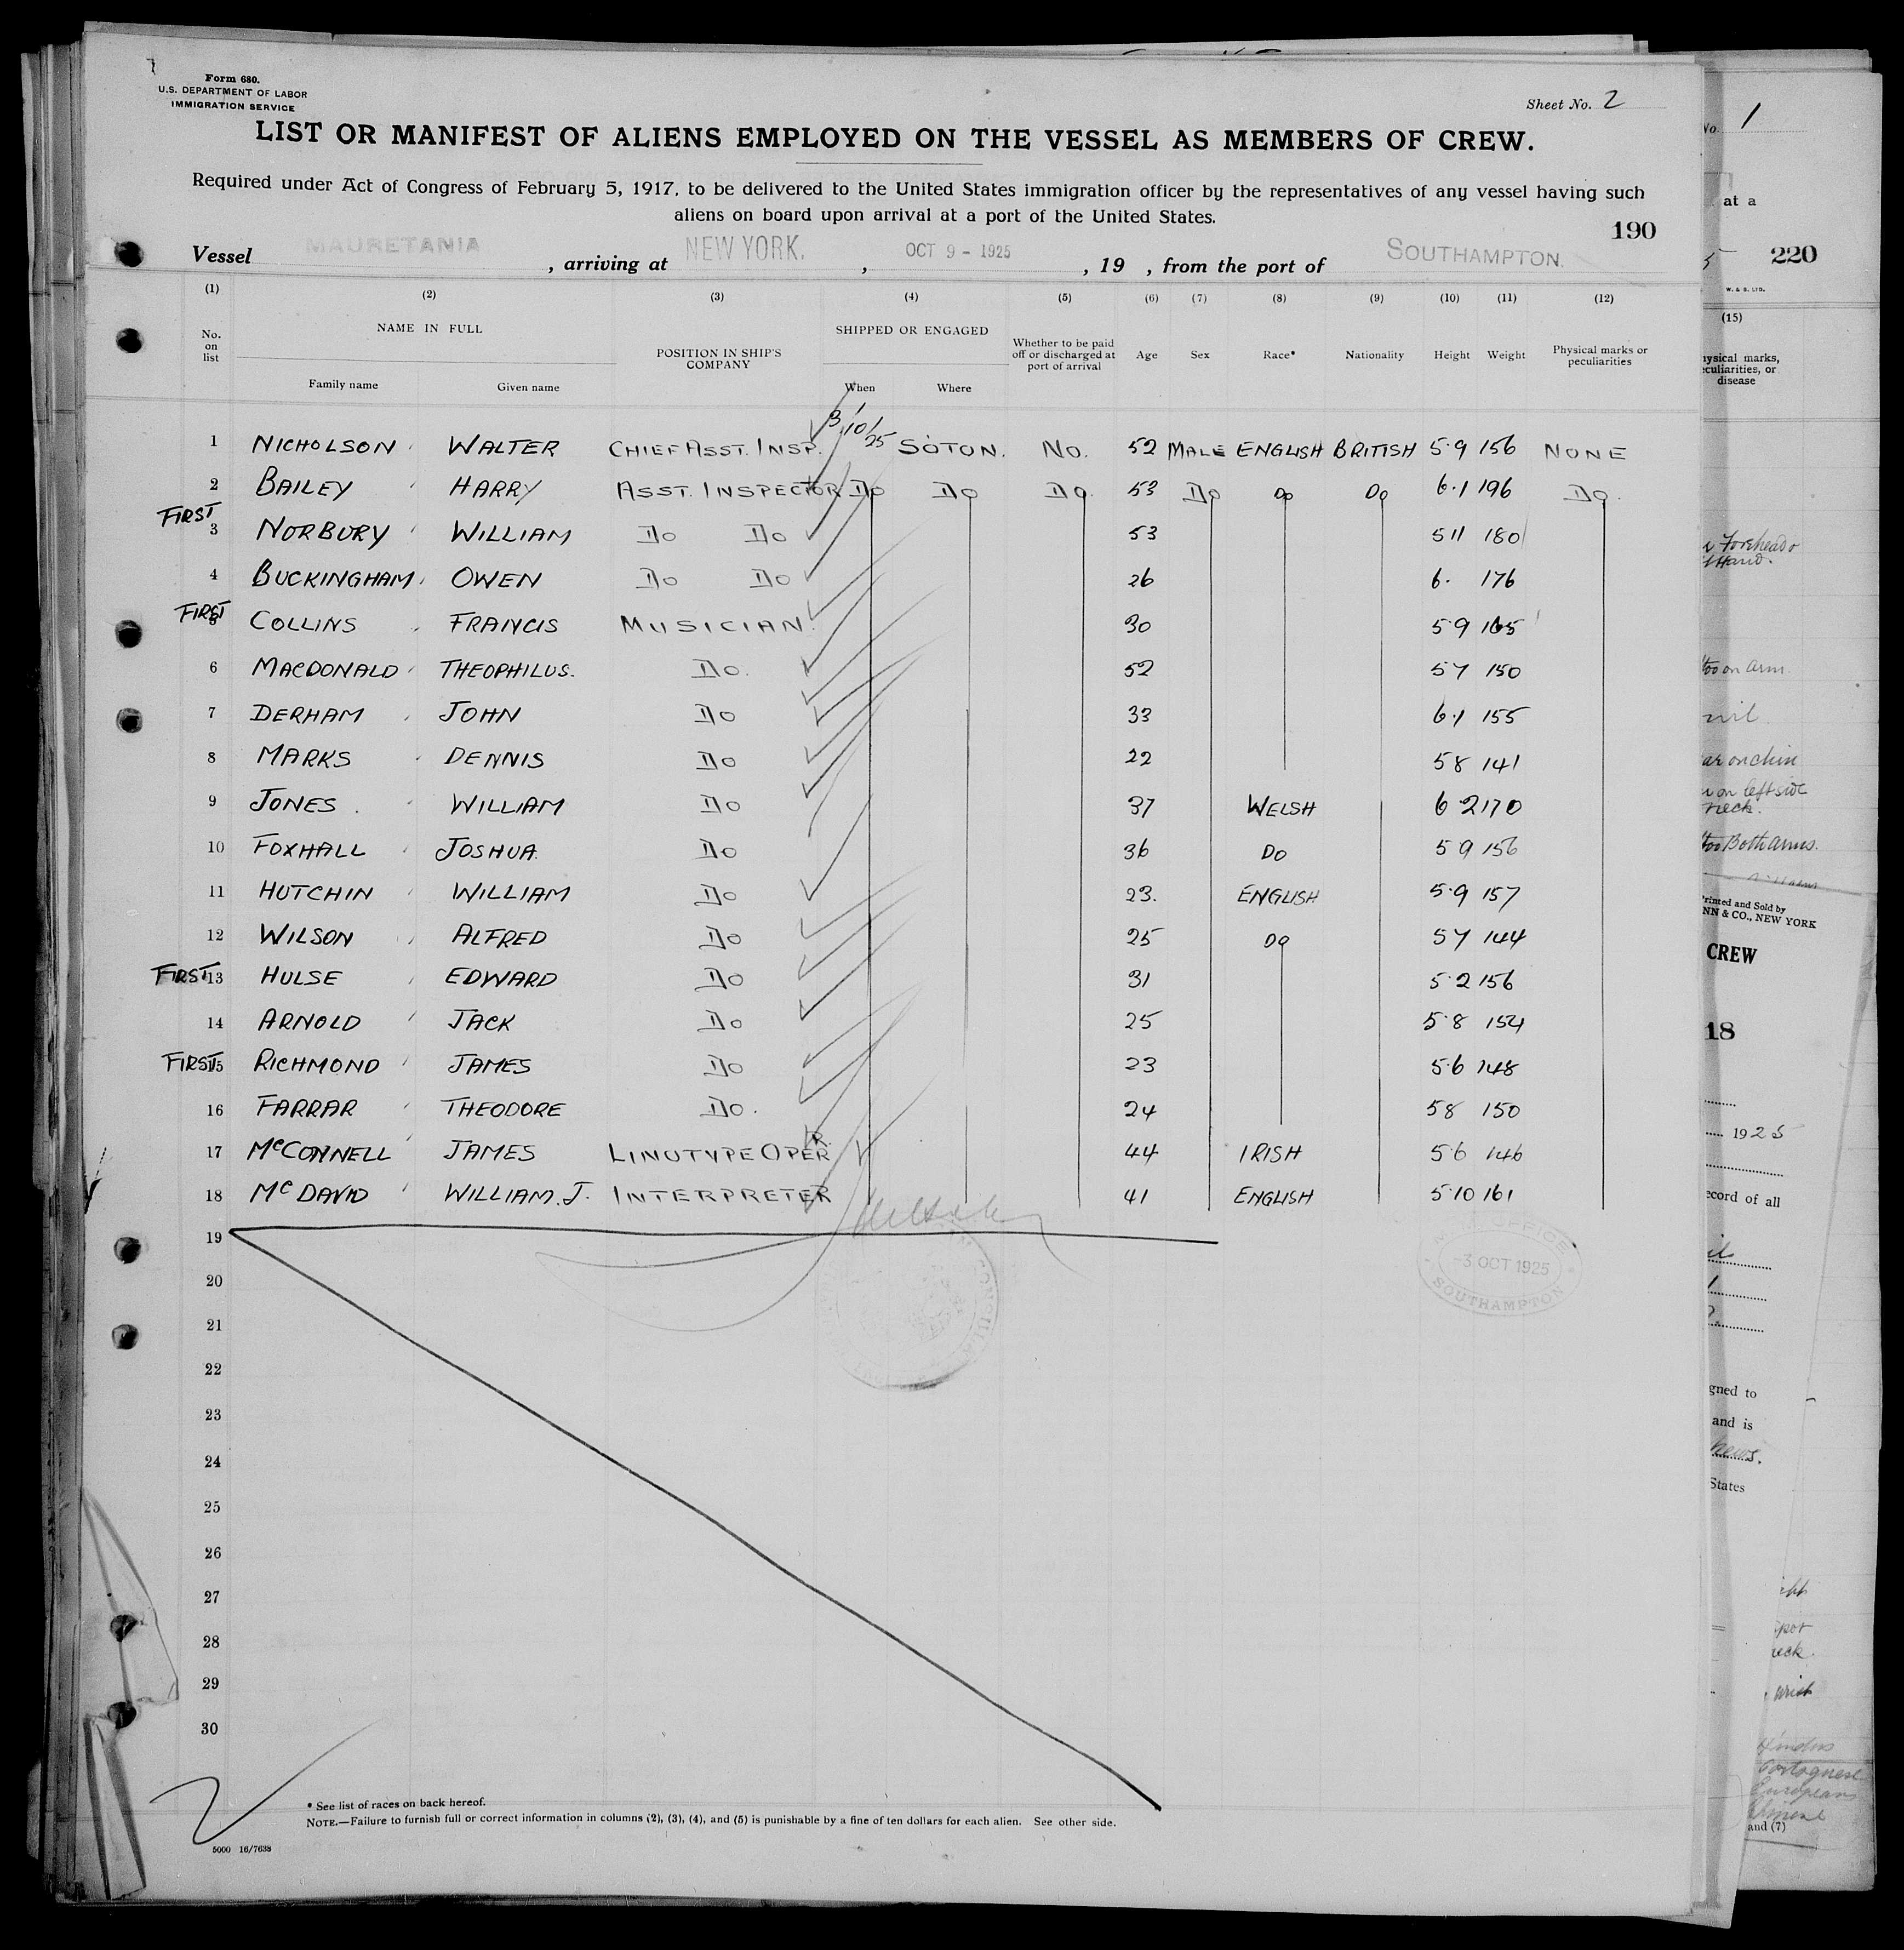 Form 680.
U.S. DEPARTMENT OF LABOR
IMMIGRATION SERVICE
Sheet No. 2
LIST OR MANIFEST OF ALIENS EMPLOYED ON THE VESSEL AS MEMBERS OF CREW.
Required under Act of Congress of February 5, 1917, to be delivered to the United States immigration officer by the representatives of any vessel having such
aliens on board upon arrival at a port of the United States.
190
Vessel MAURETANIA, arriving at NEW YORK., OCT 9 - 1925, 19 , from the port of SOUTHAMPTON.
(1) (2) (3) (4) (5) (6) (7) (8) (9) (10) (11) (12)
No. on list NAME IN FULL POSITION IN SHIP'S COMPANY SHIPPED OR ENGAGED Whether to be paid off or discharged at port of arrival Age Sex Race* Nationality Height Weight Physical marks or peculiarities
Family name Given name When Where
1 NICHOLSON WALTER CHIEF ASST. INSP. 3/10/25 SOTON. NO. 52 MALE ENGLISH BRITISH 5.9 156 NONE
2 BAILEY HARRY ASST. INSPECTOR DO DO DO. 53 DO DO DO 6.1 196 DO.
FIRST 3 NORBURY WILLIAM DO DO 53 5 11 180
4 BUCKINGHAM OWEN DO DO 26 6. 176
FIRST 5 COLLINS FRANCIS MUSICIAN. 30 5.9 165
6 MACDONALD THEOPHILUS. DO. 52 5 7 150
7 DERHAM JOHN DO 33 6.1 155
8 MARKS DENNIS DO 22 5 8 141
9 JONES. WILLIAM DO 37 WELSH 6 2 170
10 FOXHALL JOSHUA. DO 36 DO 5 9 156
11 HUTCHIN WILLIAM DO 23. ENGLISH 5.9 157
12 WILSON ALFRED DO 25 DO 5 7 144
FIRST 13 HULSE EDWARD DO 31 5.2 156
14 ARNOLD JACK DO 25 5.8 154
FIRST 15 RICHMOND JAMES DO 23 5.6 148
16 FARRAR THEODORE DO. 24 5 8 150
17 McCONNELL JAMES LINOTYPE OPER R. 44 IRISH 5.6 146
18 McDAVID WILLIAM. J. INTERPRETER 41 ENGLISH 5.10 161
19
20
21
22
23
24
25
26
27
28
29
30
OFFICE
-3 OCT 1925
SOUTHAMPTON
* See list of races on back hereof.
NOTE.—Failure to furnish full or correct information in columns (2), (3), (4), and (5) is punishable by a fine of ten dollars for each alien. See other side.
5000 16/7638
No. 1
at a
220
W. & S. LTD.
(15)
disease
on arm
nil
on chin
on left side
neck.
Both arms.
Printed and Sold by
NN & CO., NEW YORK
CREW
18
1925
record of all
gned to
and is
States
neck.
wrist
Hindus
Portuguese
Europeans
and (7)